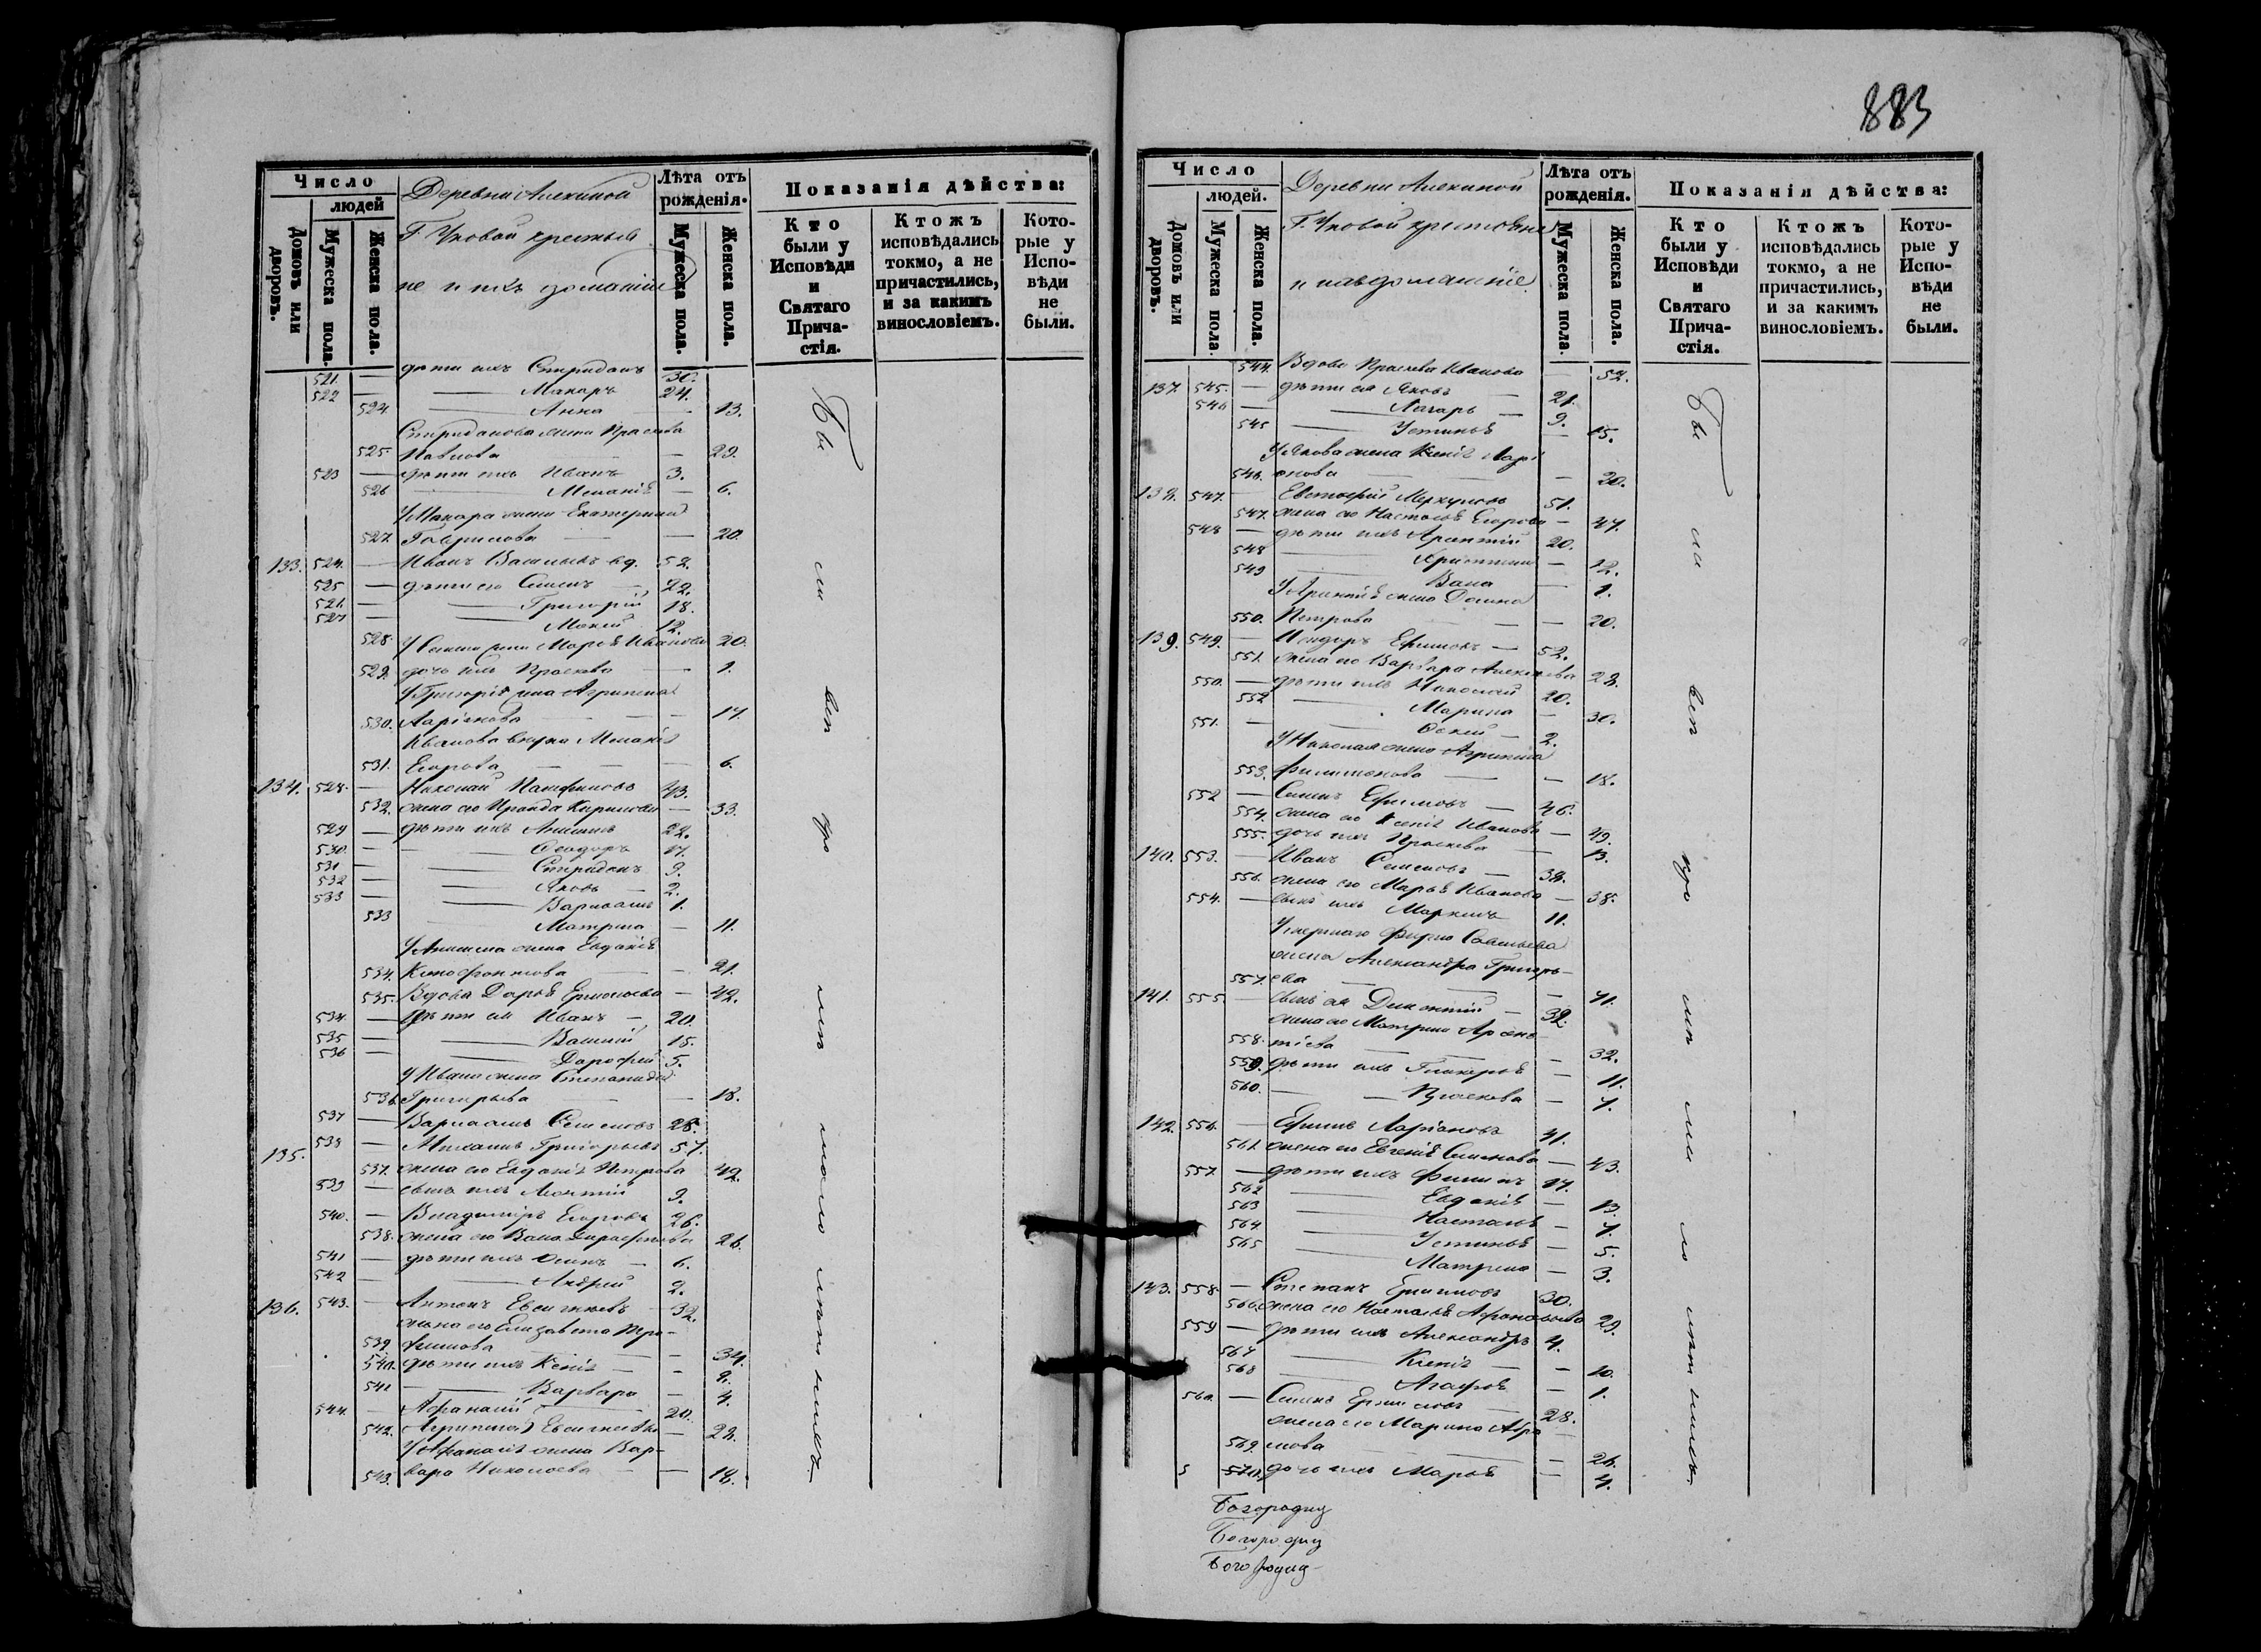 883
Число
людей
Домовъ или дворовъ.
Мужеска пола.
Женска пола.
Деревни Алекиной
Г. Уховой крестья
не и ихъ домашніе
Лѣта отъ рожденія.
Мужеска пола.
Женска пола.
Показанія дѣйства:
Кто были у Исповѣди и Святаго Причастія.
Ктожъ исповѣдались токмо, а не причастились, и за какимъ винословіемъ.
Которые у Исповѣди не были.
521. — дѣти ихъ Спиридонъ 30.
522 — Макаръ 24.
524 Анна — 13.
Спиридонова жена Прасковья
525. Павлова — 29.
523 — дѣти ихъ Иванъ 3.
526 Меланія — 6.
У Макара жена Екатерина
527. Гаврилова — 20.
133. 524. — Иванъ Васильевъ вд. 52.
525 — дѣти его Семенъ 22.
526 — Григорій 18.
527 — Мокей 12.
528. У Семена жена Марья Иванова 20.
529. дочь ихъ Прасковья — 1.
У Григорія жена Агрипена
530. Ларіонова — 17.
Иванова внучка Меланія
531. Егорова — 6.
134. 528. — Николай Панфиловъ 43.
532. жена его Ираида Кирилова — 33.
529 — дѣти ихъ Анисимъ 22.
530. — Ѳеодоръ 17.
531 — Спиридонъ 9.
532 — Яковъ 2.
533 — Варлаамъ 1.
533 Матрена — 11.
У Анисима жена Евдокія
534. Ксенофонтова — 21.
535. Вдова Дарья Ермолаева — 42.
534. — Дѣти ея Иванъ — 20.
535 — Василій 15.
536 — Дорофей 5.
У Ивана жена Степанида
536. Григорьева — 18.
537 — Варлаамъ Семеновъ 28.
135. 538 — Михаилъ Григорьевъ 57.
537. жена его Евдокія Петрова 42.
539 — сынъ ихъ Леонтій 9.
540. — Владиміръ Егоровъ 26.
538. жена его Васса Дорофеева 26.
541 — дѣти ихъ Осипъ — 6.
542 — Андрей 2.
136. 543. — Антонъ Евсигнѣевъ 32.
жена его Елизавета Тро-
539. фимова — 34.
540. дѣти ихъ Ксенія — 8.
541 Варвара — 4.
544. — Афанасій 20.
542. Агрипена Евсигнѣева — 22.
У Афанасія жена Вар-
543. вара Николаева — 18.
Число
людей.
Домовъ или дворовъ.
Мужеска пола.
Женска пола.
Деревни Алекиной
Г. Уховой крестьяне
и ихъ домашніе.
Лѣта отъ рожденія.
Мужеска пола.
Женска пола.
Показанія дѣйства:
Кто были у Исповѣди и Святаго Причастія.
Ктожъ исповѣдались токмо, а не причастились, и за какимъ винословіемъ.
Которые у Исповѣди не были.
544. Вдова Прасковья Иванова — 52.
137. 545. — дѣти ея Яковъ 21.
546 — Лазарь — 9.
545 Устинья — 15.
У Якова жена Ксенія Ларі
546. онова — 20.
138. 547. — Евстафій Меркуловъ 51.
547. жена его Настасья Егорова — 47.
548 — дѣти ихъ Арефтій 20.
548 Христина — 12.
549 Васса — 1.
жена Домна
550. Петрова — 20.
139. 549. — Исидоръ Ефимовъ — 52.
551. жена его Варвара Алексѣева 28.
550. — дѣти ихъ Николай 20.
552 Марина — 30.
551. — 2.
У Николая жена Агрипина
553. Филимонова — 18.
552 — Семенъ Ефимовъ — 46.
554. жена его Ксенія Иванова — 49.
555. дочь ихъ Прасковья — 13.
140. 553. — Иванъ Семеновъ — 38.
556. жена его Марья Иванова — 38.
554. — сынъ ихъ Маркелъ 11.
У умершаго Фирса Савельева
жена Александра Григорь-
557. ева — 71.
141. 555. — сынъ ея Дементій — 32.
жена его Матрена Арсен-
558. тіева — 32.
559. дѣти ихъ Гликерья — 11.
560. Прасковья — 7.
142. 556. — Ефимъ Ларіоновъ 41.
561. жена его Евгенія Семенова — 43.
557. — дѣти ихъ Филипъ 17.
562 Евдокія — 13.
563 Настасья — 7.
564. Устинья — 5.
565 Матрена — 3.
143. 558. — Степанъ Ермиловъ 30.
566. жена его Настасья Афанасьева 29.
559 — дѣти ихъ Александръ 4.
567 Ксенія — 10.
568 Агафья — 1.
560. — Семенъ Ермиловъ 28.
жена его Марина Абра
569. мова — 26.
5 570. дочь ихъ Марья — 4.
Богородиц
Богородиц
Богородиц